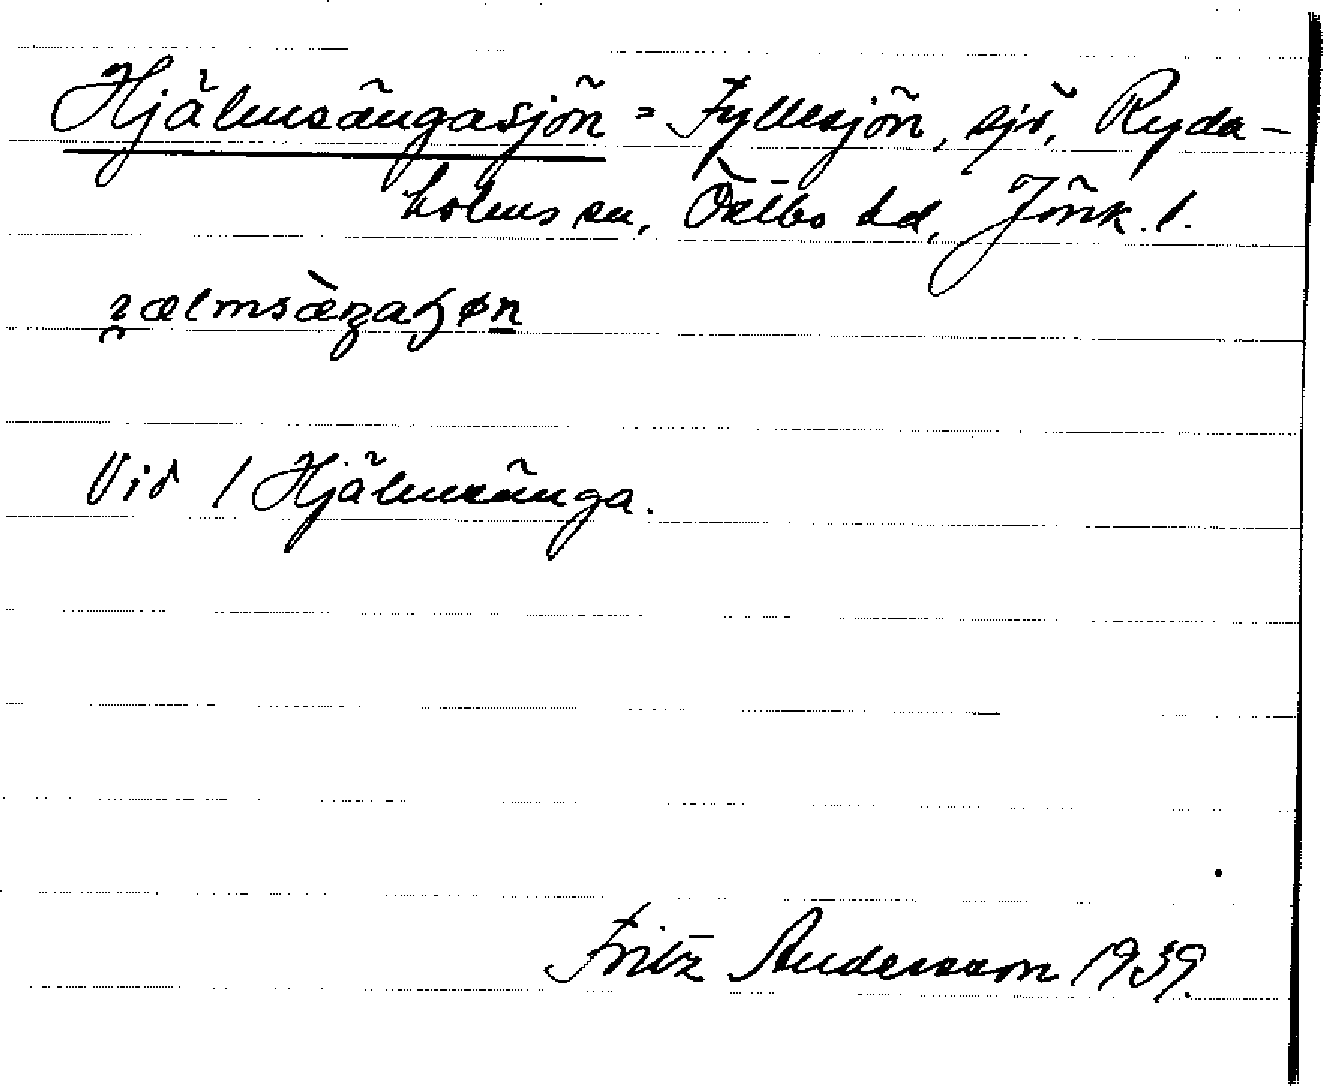 Hjälmsängasjön = Fyllesjön, sjö, Ryda-
holms sn, Östbo hd, Jönk. l.
Vid / Hjälmsänga.
Fritz Andersson 1939.